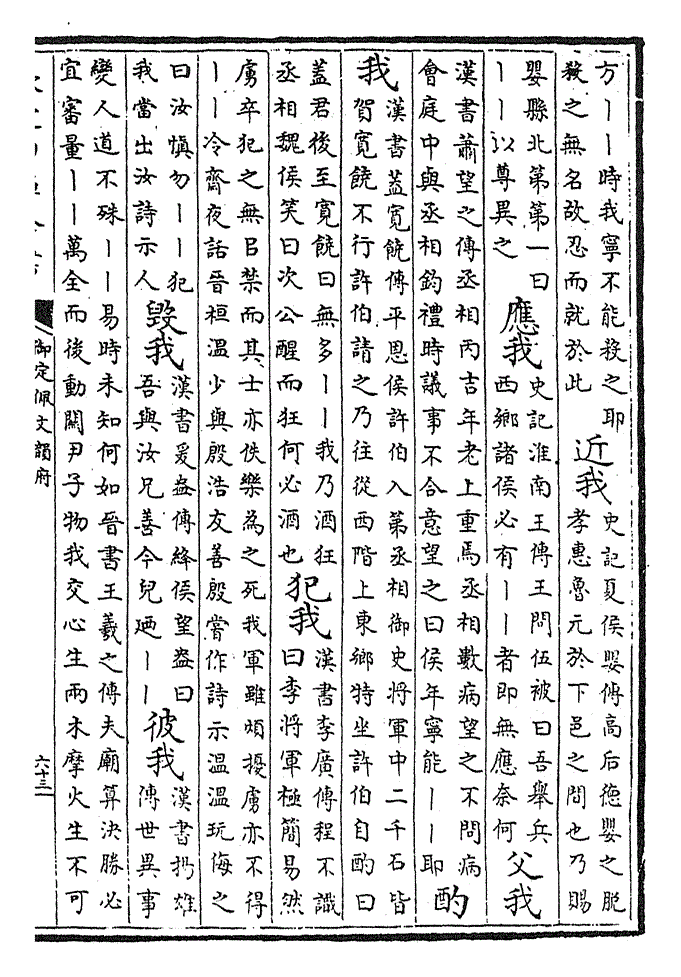 方丨丨時我寧不能殺之耶
殺之無名故忍而就於此
近我
史記夏侯嬰傳高后德嬰之脫
孝惠魯元於下邑之間也乃賜
嬰縣北第第一曰
丨丨以尊異之
應我
史記淮南王傳王問伍被曰吾舉兵
西鄉諸侯必有丨丨者即無應奈何
父我
漢書蕭望之傳丞相丙吉年老上重焉丞相數病望之不問病
會庭中與丞相鈞禮時議事不合意望之曰侯年寧能丨丨耶
酌
我
漢書蓋寬饒傳平恩侯許伯入第丞相御史將軍中二千石皆
賀寬饒不行許伯請之乃往從西階上東鄉特坐許伯自酌曰
蓋君後至寬饒曰無多丨丨我乃酒狂
丞相魏侯笑曰次公醒而狂何必酒也
犯我
漢書李廣傳程不識
曰李將軍極簡易然
虜卒犯之無㠯禁而其士亦佚樂為之死我軍雖煩擾虜亦不得
丨丨冷齋夜話晉桓溫少與殷浩友善殷嘗作詩示溫溫玩侮之
曰汝慎勿丨丨犯
我當出汝詩示人
毀我
漢書爰盎傳絳侯望盎曰
吾與汝兄善今兒廼丨丨
彼我
漢書揚雄
傳世異事
變人道不殊丨丨易時未知何如晉書王羲之傳夫廟算決勝必
宜審量丨丨萬全而後動關尹子物我交心生兩木摩火生不可
御定佩文韻府
六十三